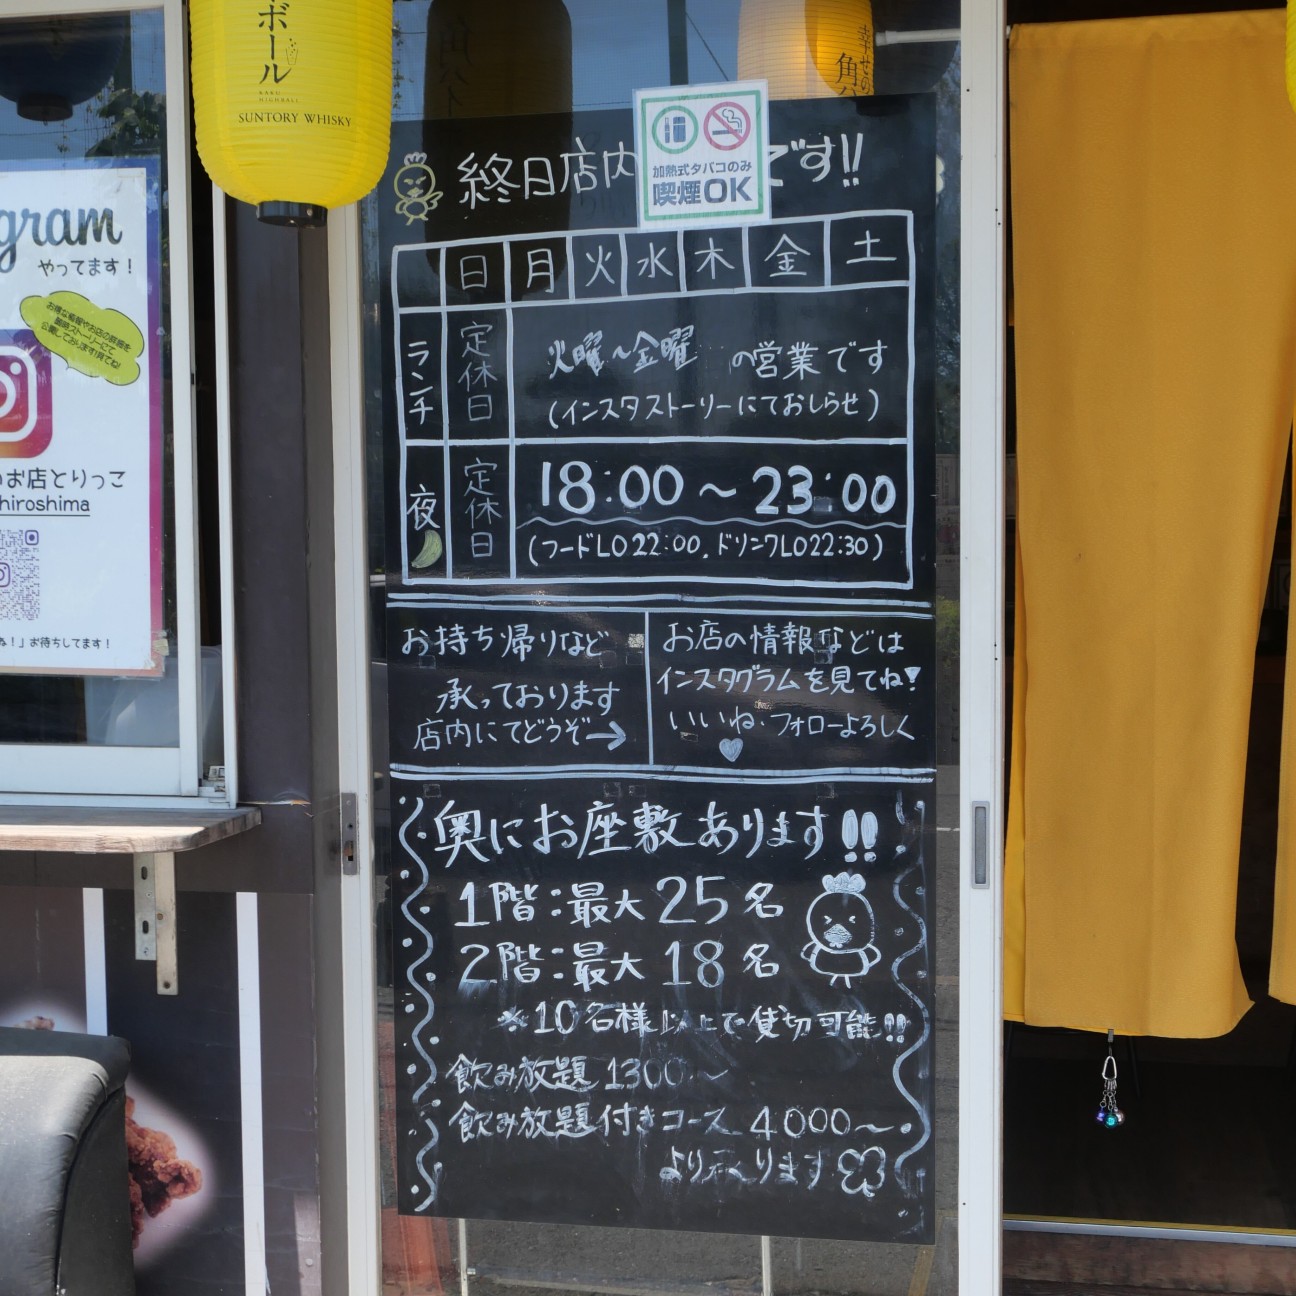 ボール
KAKU
HIGHBALL
SUNTORY WHISKY
幸せの
角ハ
加熱式タバコのみ
喫煙OK
終日店内
です!!
日 月 火 水 木 金 土
ランチ
定休日
火曜〜金曜 の営業です
(インスタストーリーにておしらせ)
夜
定休日
18:00〜23:00
(フードLO22:00.ドリンクLO22:30)
お持ち帰りなど
承っております
店内にてどうぞ→
お店の情報などは
インスタグラムを見てね!
いいね・フォローよろしく
奥にお座敷あります!!
1階:最大25名
2階:最大18名
※10名様以上で貸切可能!!
飲み放題 1300〜
飲み放題付きコース 4000〜
より承ります
gram
やってます!
お得な情報やお店の様子を
随時ストーリーにて
公開しております!見てね!
お店とりっこ
hiroshima
ね!」お待ちしてます!